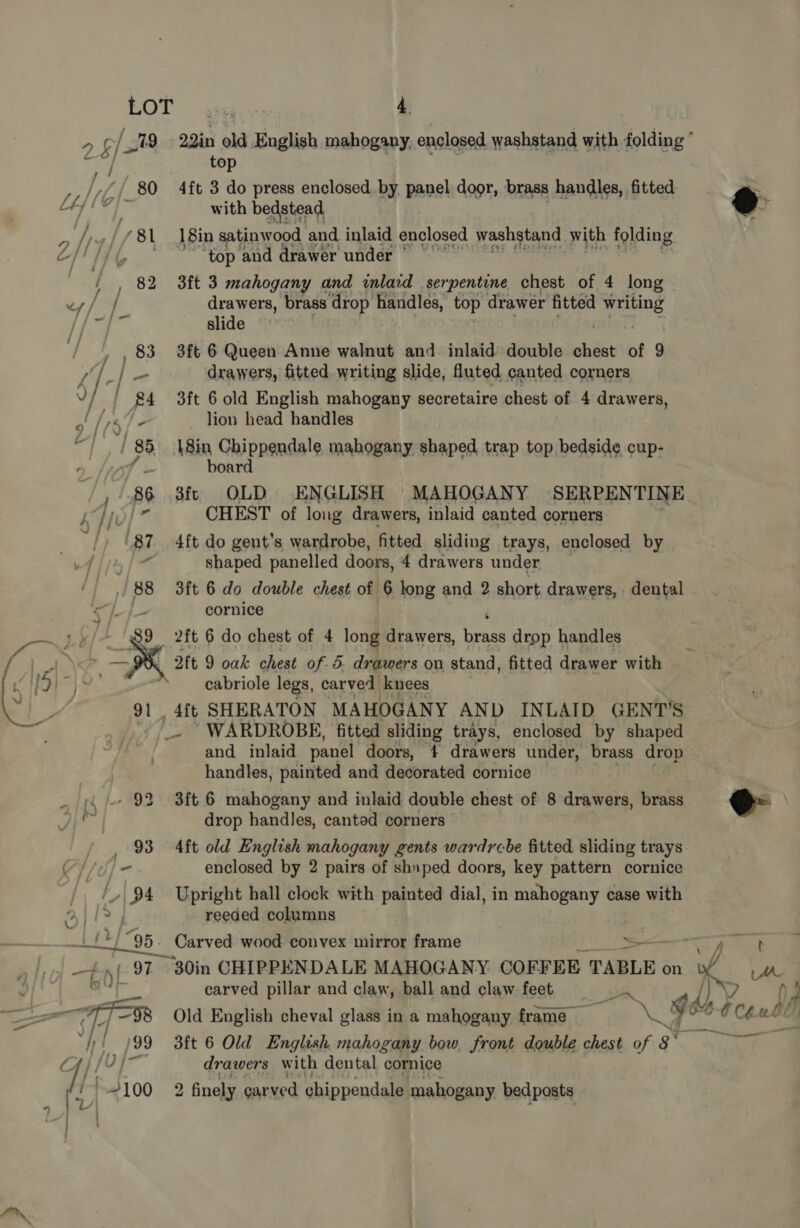 LOT 4
79 22in old English mahogany, enclosed washstand with folding
top
80 4ft 3 do press enclosed by panel door, brass handles, fitted
with bedstead
81 18in satinwood and inlaid enclosed washstand with folding
top and drawer under
82 3ft 3 mahogany and inlaid serpentine chest of 4 long
drawers, brass drop handles, top drawer fitted writing
slide
83 3ft 6 Queen Anne walnut and inlaid double chest of 9
drawers, fitted writing slide, fluted canted corners
84 3ft 6 old English mahogany secretaire chest of 4 drawers,
lion head handles
85 18in Chippendale mahogany shaped trap top bedside cup-
board
86 3ft OLD ENGLISH MAHOGANY SERPENTINE
CHEST of long drawers, inlaid canted corners
87 4ft do gent's wardrobe, fitted sliding trays, enclosed by
shaped panelled doors, 4 drawers under
88 3ft 6 do double chest of 6 long and 2 short drawers, dental
cornice
89 2ft 6 do chest of 4 long drawers, brass drop handles
2ft 9 oak chest of 5 drawers on stand, fitted drawer with
cabriole legs, carved knees
91 4ft SHERATON MAHOGANY AND INLAID GENT'S
WARDROBE, fitted sliding trays, enclosed by shaped
and inlaid panel doors, 4 drawers under, brass drop
handles, painted and decorated cornice
92 3ft 6 mahogany and inlaid double chest of 8 drawers, brass
drop handles, canted corners
93 4ft old English mahogany gents wardrcbe fitted sliding trays
enclosed by 2 pairs of shaped doors, key pattern cornice
94 Upright hall clock with painted dial, in mahogany case with
reeded columns
95 Carved wood convex mirror frame
97 30in CHIPPENDALE MAHOGANY COFFEE TABLE on
carved pillar and claw, ball and claw feet
98 Old English cheval glass in a mahogany frame
99 3ft 6 Old English mahogany bow front double chest of 8
drawers with dental cornice
100 2 finely carved chippendale mahogany bedposts